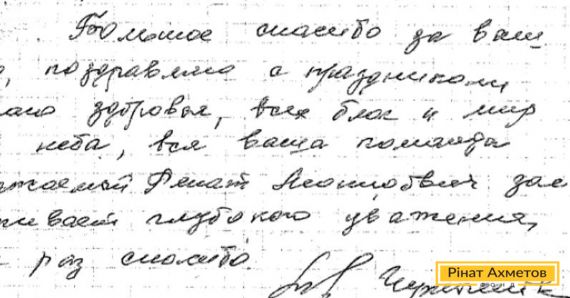 Большое спасибо за ваш
, поздравляю с праздником
здоровья, всех благ и мир
неба, вся ваша команда
Ренат Леонидович зас
живает глубокого уважения,
раз спасибо.
Рінат Ахметов